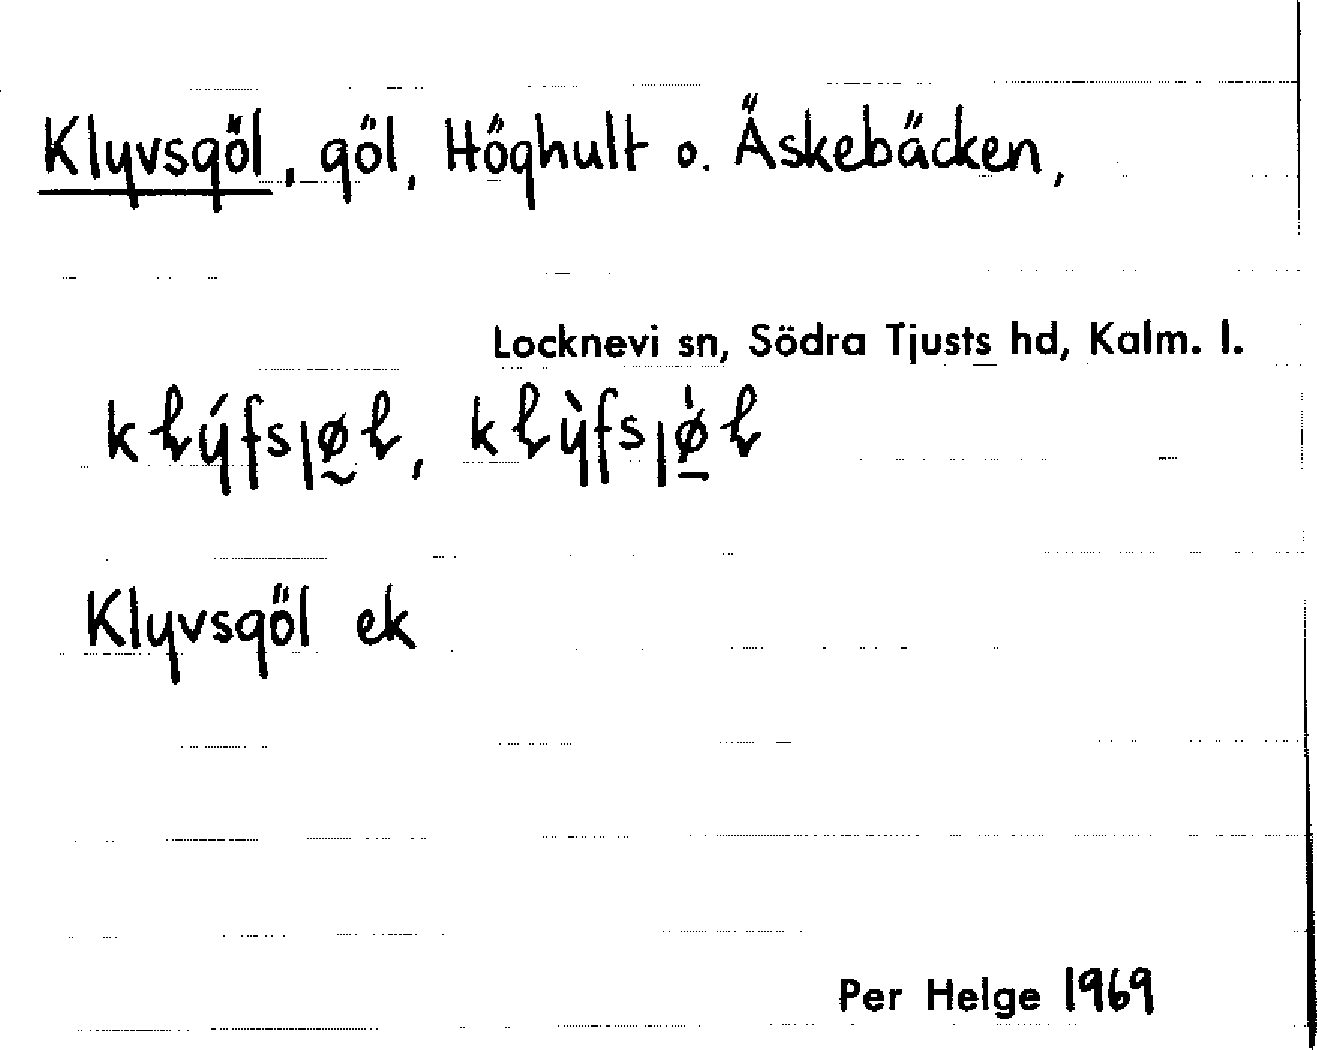 Klyvsgöl, göl, Höghult o. Äskebäcken,
Locknevi sn, Södra Tjusts hd, Kalm. l.
Klyvsgöl ek
Per Helge 1969